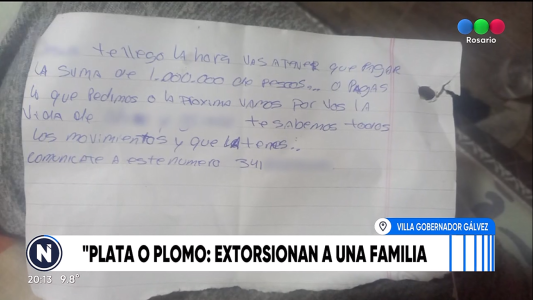 telefe
Rosario
te llego la hora vas a tener que pagar
la suma de 1.000.000 de pesos... o pagas
lo que pedimos o la proxima vamos por vos la
vida de
te sabemos todos
los movimientos y que la tenes..
comunicate a este numero 341
VILLA GOBERNADOR GÁLVEZ
N
"PLATA O PLOMO: EXTORSIONAN A UNA FAMILIA
20:13 9.8°